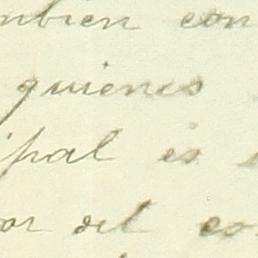 mbien con
quienes
ipal es
or del co